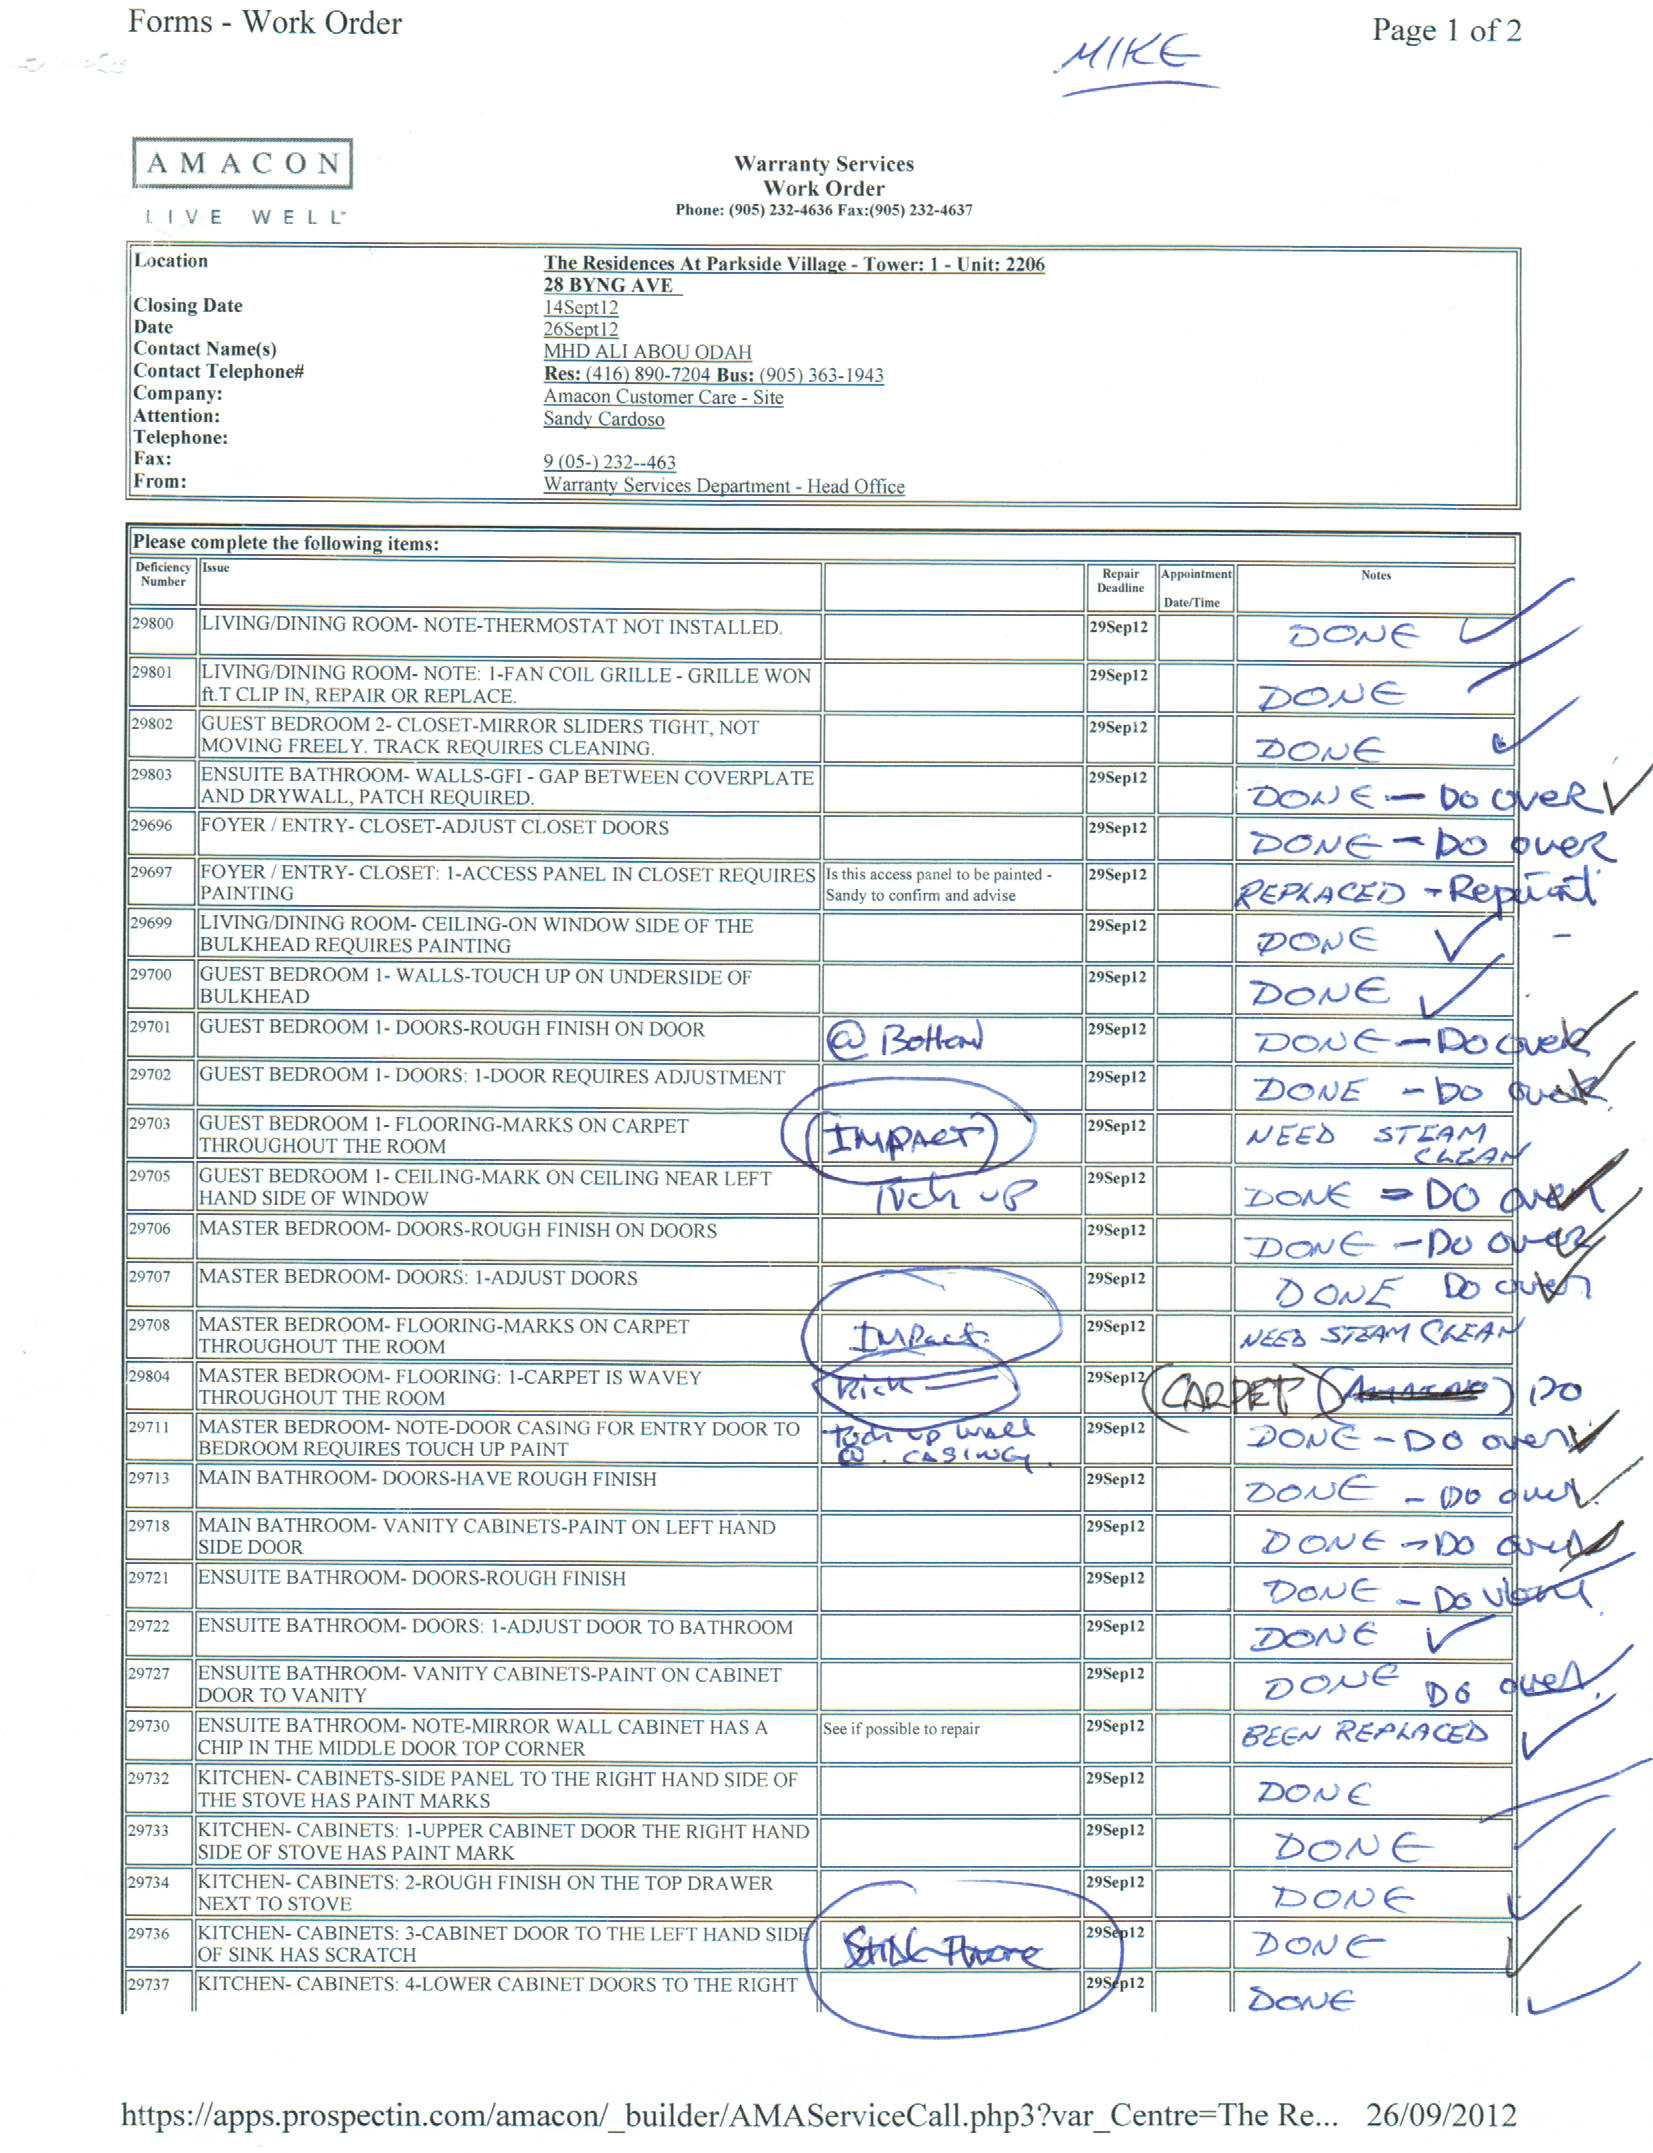 Forms - Work Order
Page 1 of 2
MIKE
AMACON
LIVE WELL
Warranty Services
Work Order
Phone: (905) 232-4636 Fax:(905) 232-4637
Location The Residences At Parkside Village - Tower: 1 - Unit: 2206
28 BYNG AVE
Closing Date 14Sept12
Date 26Sept12
Contact Name(s) MHD ALI ABOU ODAH
Contact Telephone# Res: (416) 890-7204 Bus: (905) 363-1943
Company: Amacon Customer Care - Site
Attention: Sandy Cardoso
Telephone:
Fax: 9 (05-) 232--463
From: Warranty Services Department - Head Office
Please complete the following items:
Deficiency Issue Repair Appointment Notes
Number Deadline Date/Time
29800 LIVING/DINING ROOM- NOTE-THERMOSTAT NOT INSTALLED. 29Sep12 DONE ✓
29801 LIVING/DINING ROOM- NOTE: 1-FAN COIL GRILLE - GRILLE WON 29Sep12 DONE ✓
ft.T CLIP IN, REPAIR OR REPLACE.
29802 GUEST BEDROOM 2- CLOSET-MIRROR SLIDERS TIGHT, NOT 29Sep12 DONE ✓
MOVING FREELY. TRACK REQUIRES CLEANING.
29803 ENSUITE BATHROOM- WALLS-GFI - GAP BETWEEN COVERPLATE 29Sep12 DONE - DO OVER ✓
AND DRYWALL, PATCH REQUIRED.
29696 FOYER / ENTRY- CLOSET-ADJUST CLOSET DOORS 29Sep12 DONE - DO OVER
29697 FOYER / ENTRY- CLOSET: 1-ACCESS PANEL IN CLOSET REQUIRES Is this access panel to be painted - 29Sep12 REPLACED - Repaint
PAINTING Sandy to confirm and advise
29699 LIVING/DINING ROOM- CEILING-ON WINDOW SIDE OF THE 29Sep12 DONE ✓
BULKHEAD REQUIRES PAINTING
29700 GUEST BEDROOM 1- WALLS-TOUCH UP ON UNDERSIDE OF 29Sep12 DONE ✓
BULKHEAD
29701 GUEST BEDROOM 1- DOORS-ROUGH FINISH ON DOOR @ Bottom 29Sep12 DONE - DO over ✓
29702 GUEST BEDROOM 1- DOORS: 1-DOOR REQUIRES ADJUSTMENT 29Sep12 DONE - DO over ✓
29703 GUEST BEDROOM 1- FLOORING-MARKS ON CARPET (IMPACT) 29Sep12 NEED STEAM
THROUGHOUT THE ROOM CLEAN
29705 GUEST BEDROOM 1- CEILING-MARK ON CEILING NEAR LEFT 29Sep12 DONE = DO over ✓
HAND SIDE OF WINDOW Tuch up
29706 MASTER BEDROOM- DOORS-ROUGH FINISH ON DOORS 29Sep12 DONE - DO over ✓
29707 MASTER BEDROOM- DOORS: 1-ADJUST DOORS 29Sep12 DONE DO over ✓
29708 MASTER BEDROOM- FLOORING-MARKS ON CARPET Impact 29Sep12 NEED STEAM CLEAN
THROUGHOUT THE ROOM
29804 MASTER BEDROOM- FLOORING: 1-CARPET IS WAVEY Rick 29Sep12 (CARPET) DO
THROUGHOUT THE ROOM
29711 MASTER BEDROOM- NOTE-DOOR CASING FOR ENTRY DOOR TO Tuch up wall 29Sep12 DONE - DO over ✓
BEDROOM REQUIRES TOUCH UP PAINT @. CASING.
29713 MAIN BATHROOM- DOORS-HAVE ROUGH FINISH 29Sep12 DONE - DO over ✓
29718 MAIN BATHROOM- VANITY CABINETS-PAINT ON LEFT HAND 29Sep12 DONE - DO over ✓
SIDE DOOR
29721 ENSUITE BATHROOM- DOORS-ROUGH FINISH 29Sep12 DONE - Do
29722 ENSUITE BATHROOM- DOORS: 1-ADJUST DOOR TO BATHROOM 29Sep12 DONE ✓
29727 ENSUITE BATHROOM- VANITY CABINETS-PAINT ON CABINET 29Sep12 DONE DO over ✓
DOOR TO VANITY
29730 ENSUITE BATHROOM- NOTE-MIRROR WALL CABINET HAS A See if possible to repair 29Sep12 BEEN REPLACED ✓
CHIP IN THE MIDDLE DOOR TOP CORNER
29732 KITCHEN- CABINETS-SIDE PANEL TO THE RIGHT HAND SIDE OF 29Sep12 DONE ✓
THE STOVE HAS PAINT MARKS
29733 KITCHEN- CABINETS: 1-UPPER CABINET DOOR THE RIGHT HAND 29Sep12 DONE ✓
SIDE OF STOVE HAS PAINT MARK
29734 KITCHEN- CABINETS: 2-ROUGH FINISH ON THE TOP DRAWER 29Sep12 DONE ✓
NEXT TO STOVE
29736 KITCHEN- CABINETS: 3-CABINET DOOR TO THE LEFT HAND SIDE 29Sep12 DONE ✓
OF SINK HAS SCRATCH
29737 KITCHEN- CABINETS: 4-LOWER CABINET DOORS TO THE RIGHT 29Sep12 DONE ✓
https://apps.prospectin.com/amacon/_builder/AMAServiceCall.php3?var_Centre=The Re... 26/09/2012